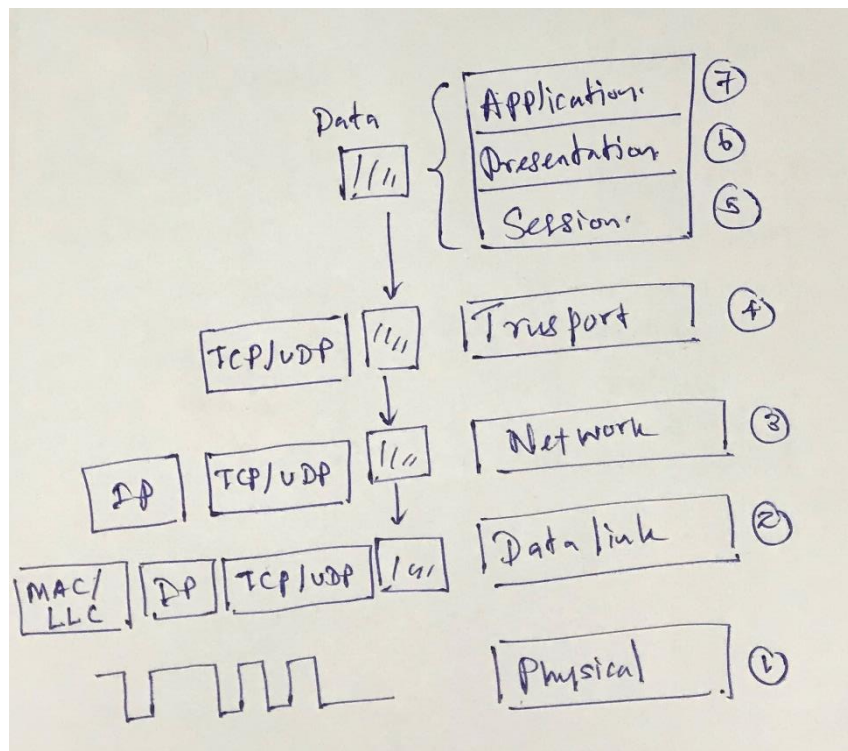 Application. 7
Data
Presentation. 6
Session. 5
TCP/UDP Trusport 4
IP TCP/UDP Network 3
MAC/ IP TCP/UDP Data link 2
LLC
Physical 1